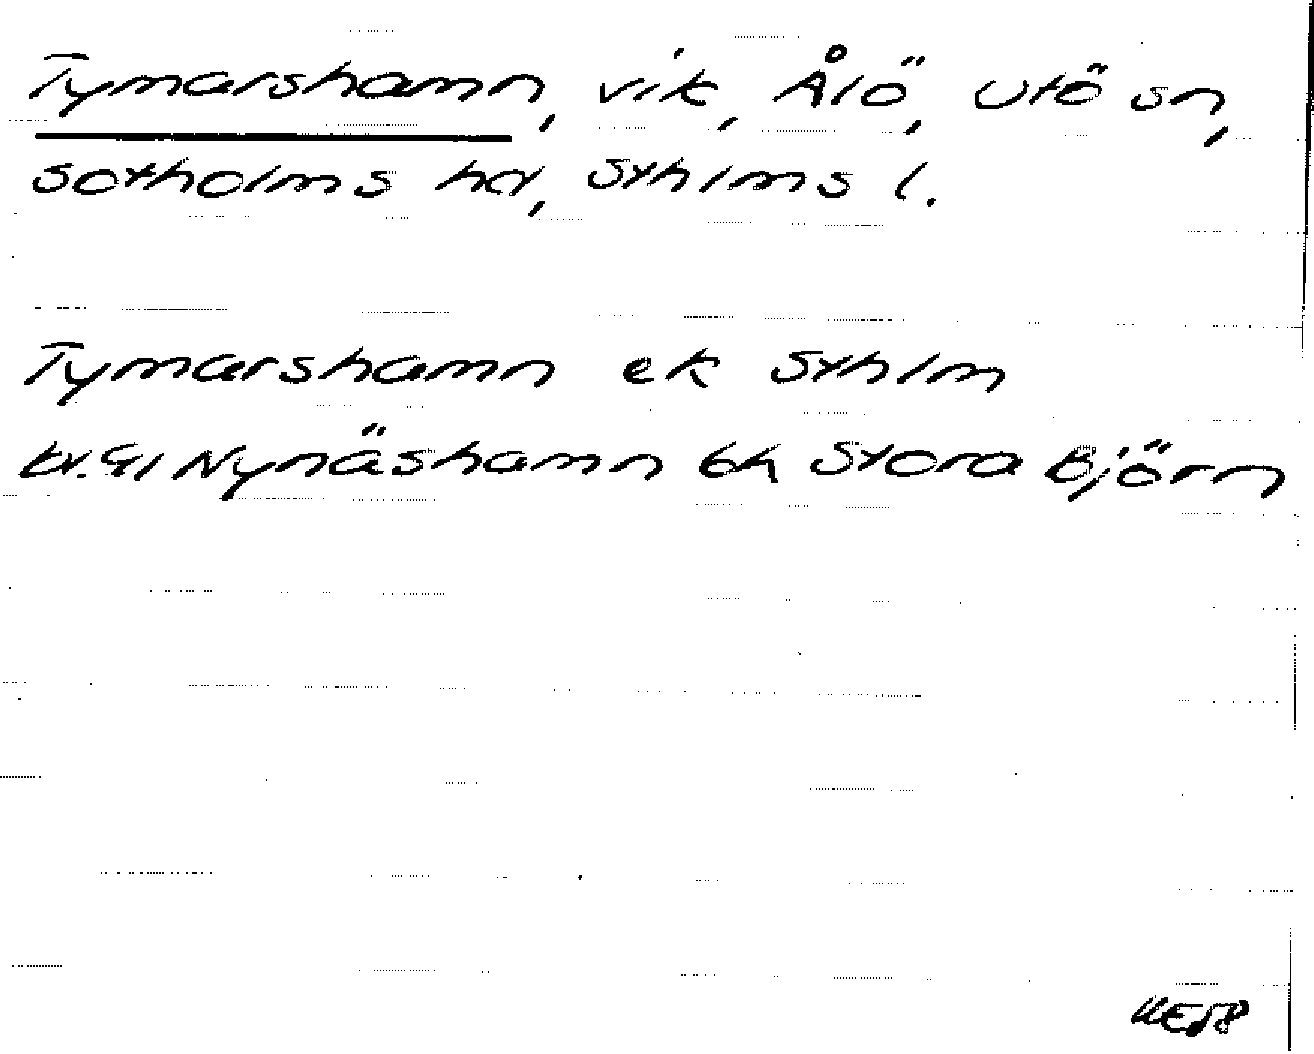 Tymarshamn, vik, Ålö, Utö sn,
Sotholms hd, Sthlms l.
Tymarshamn ek Sthlm
bl. 9I Nynäshamn 6h Stora Björn